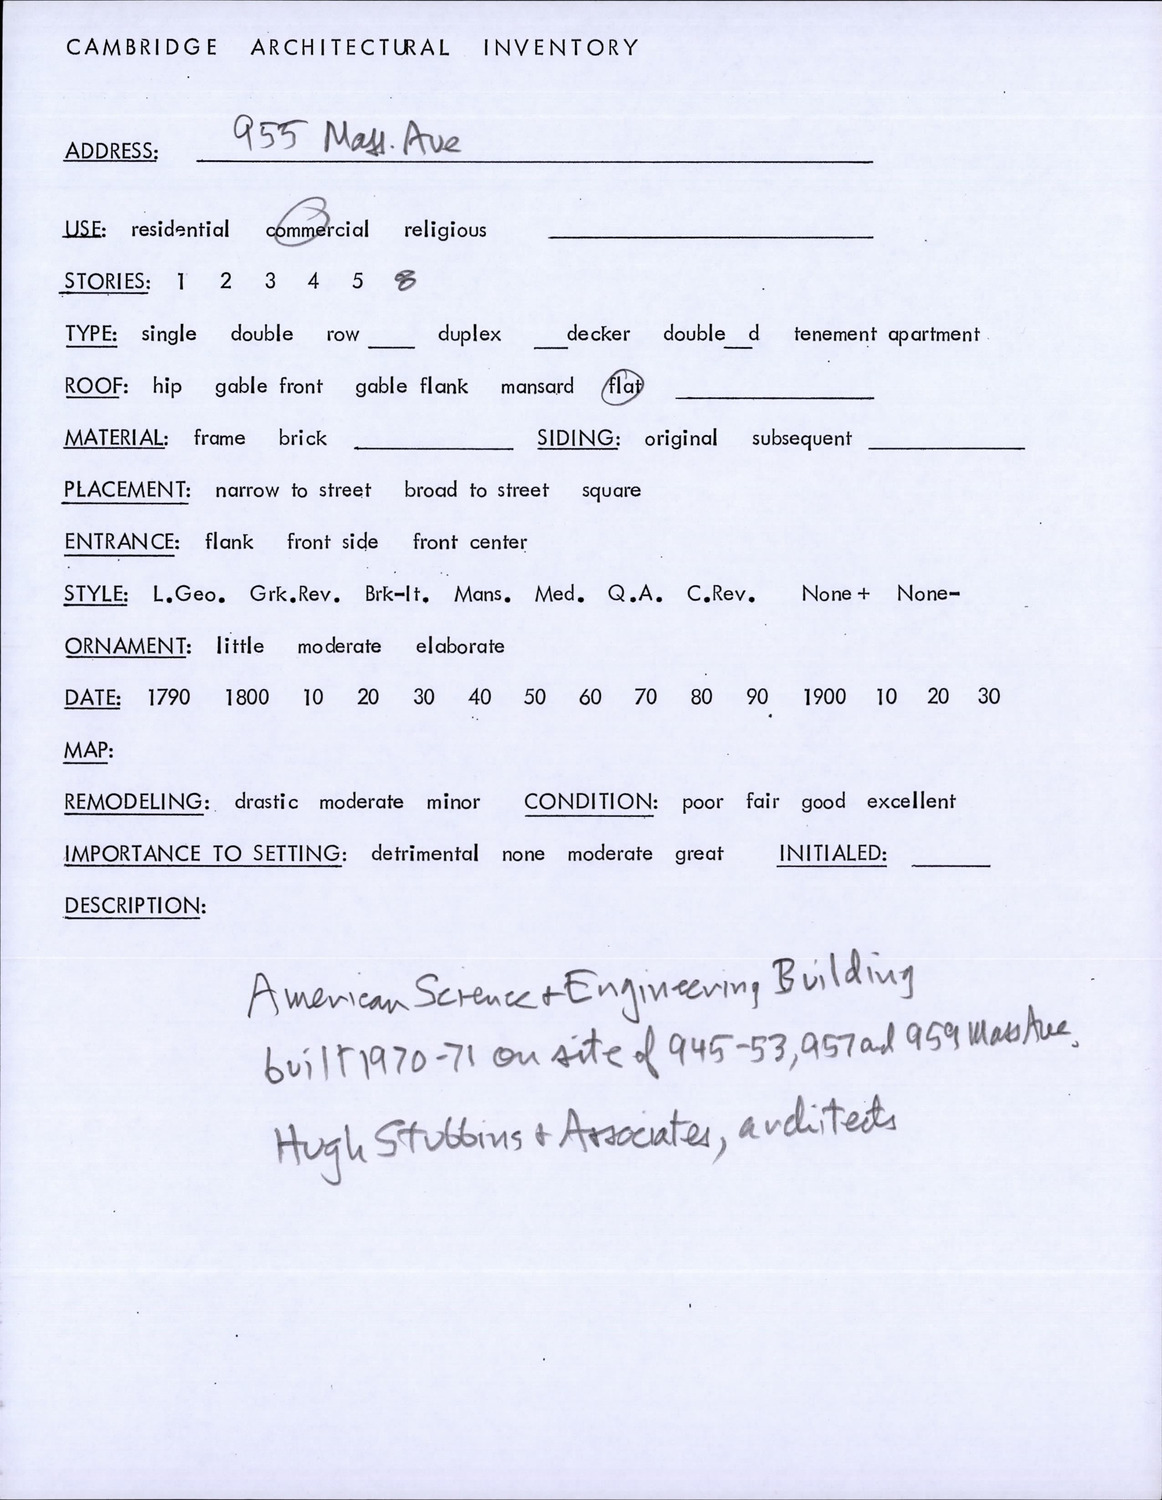 CAMBRIDGE ARCHITECTURAL INVENTORY
ADDRESS: 955 Mass. Ave
USE: residential commercial religious
STORIES: 1 2 3 4 5 8
TYPE: single double row ____ duplex ___decker double__d tenement apartment
ROOF: hip gable front gable flank mansard flat
MATERIAL: frame brick ____ SIDING: original subsequent ____
PLACEMENT: narrow to street broad to street square
ENTRANCE: flank front side front center
STYLE: L.Geo. Grk.Rev. Brk-It. Mans. Med. Q.A. C.Rev. None + None-
ORNAMENT: little moderate elaborate
DATE: 1790 1800 10 20 30 40 50 60 70 80 90 1900 10 20 30
MAP:
REMODELING: drastic moderate minor CONDITION: poor fair good excellent
IMPORTANCE TO SETTING: detrimental none moderate great INITIALED: ____
DESCRIPTION:
American Science + Engineering Building
built 1970-71 on site of 945-53, 957 and 959 Mass Ave.
Hugh Stubbins + Associates, architects